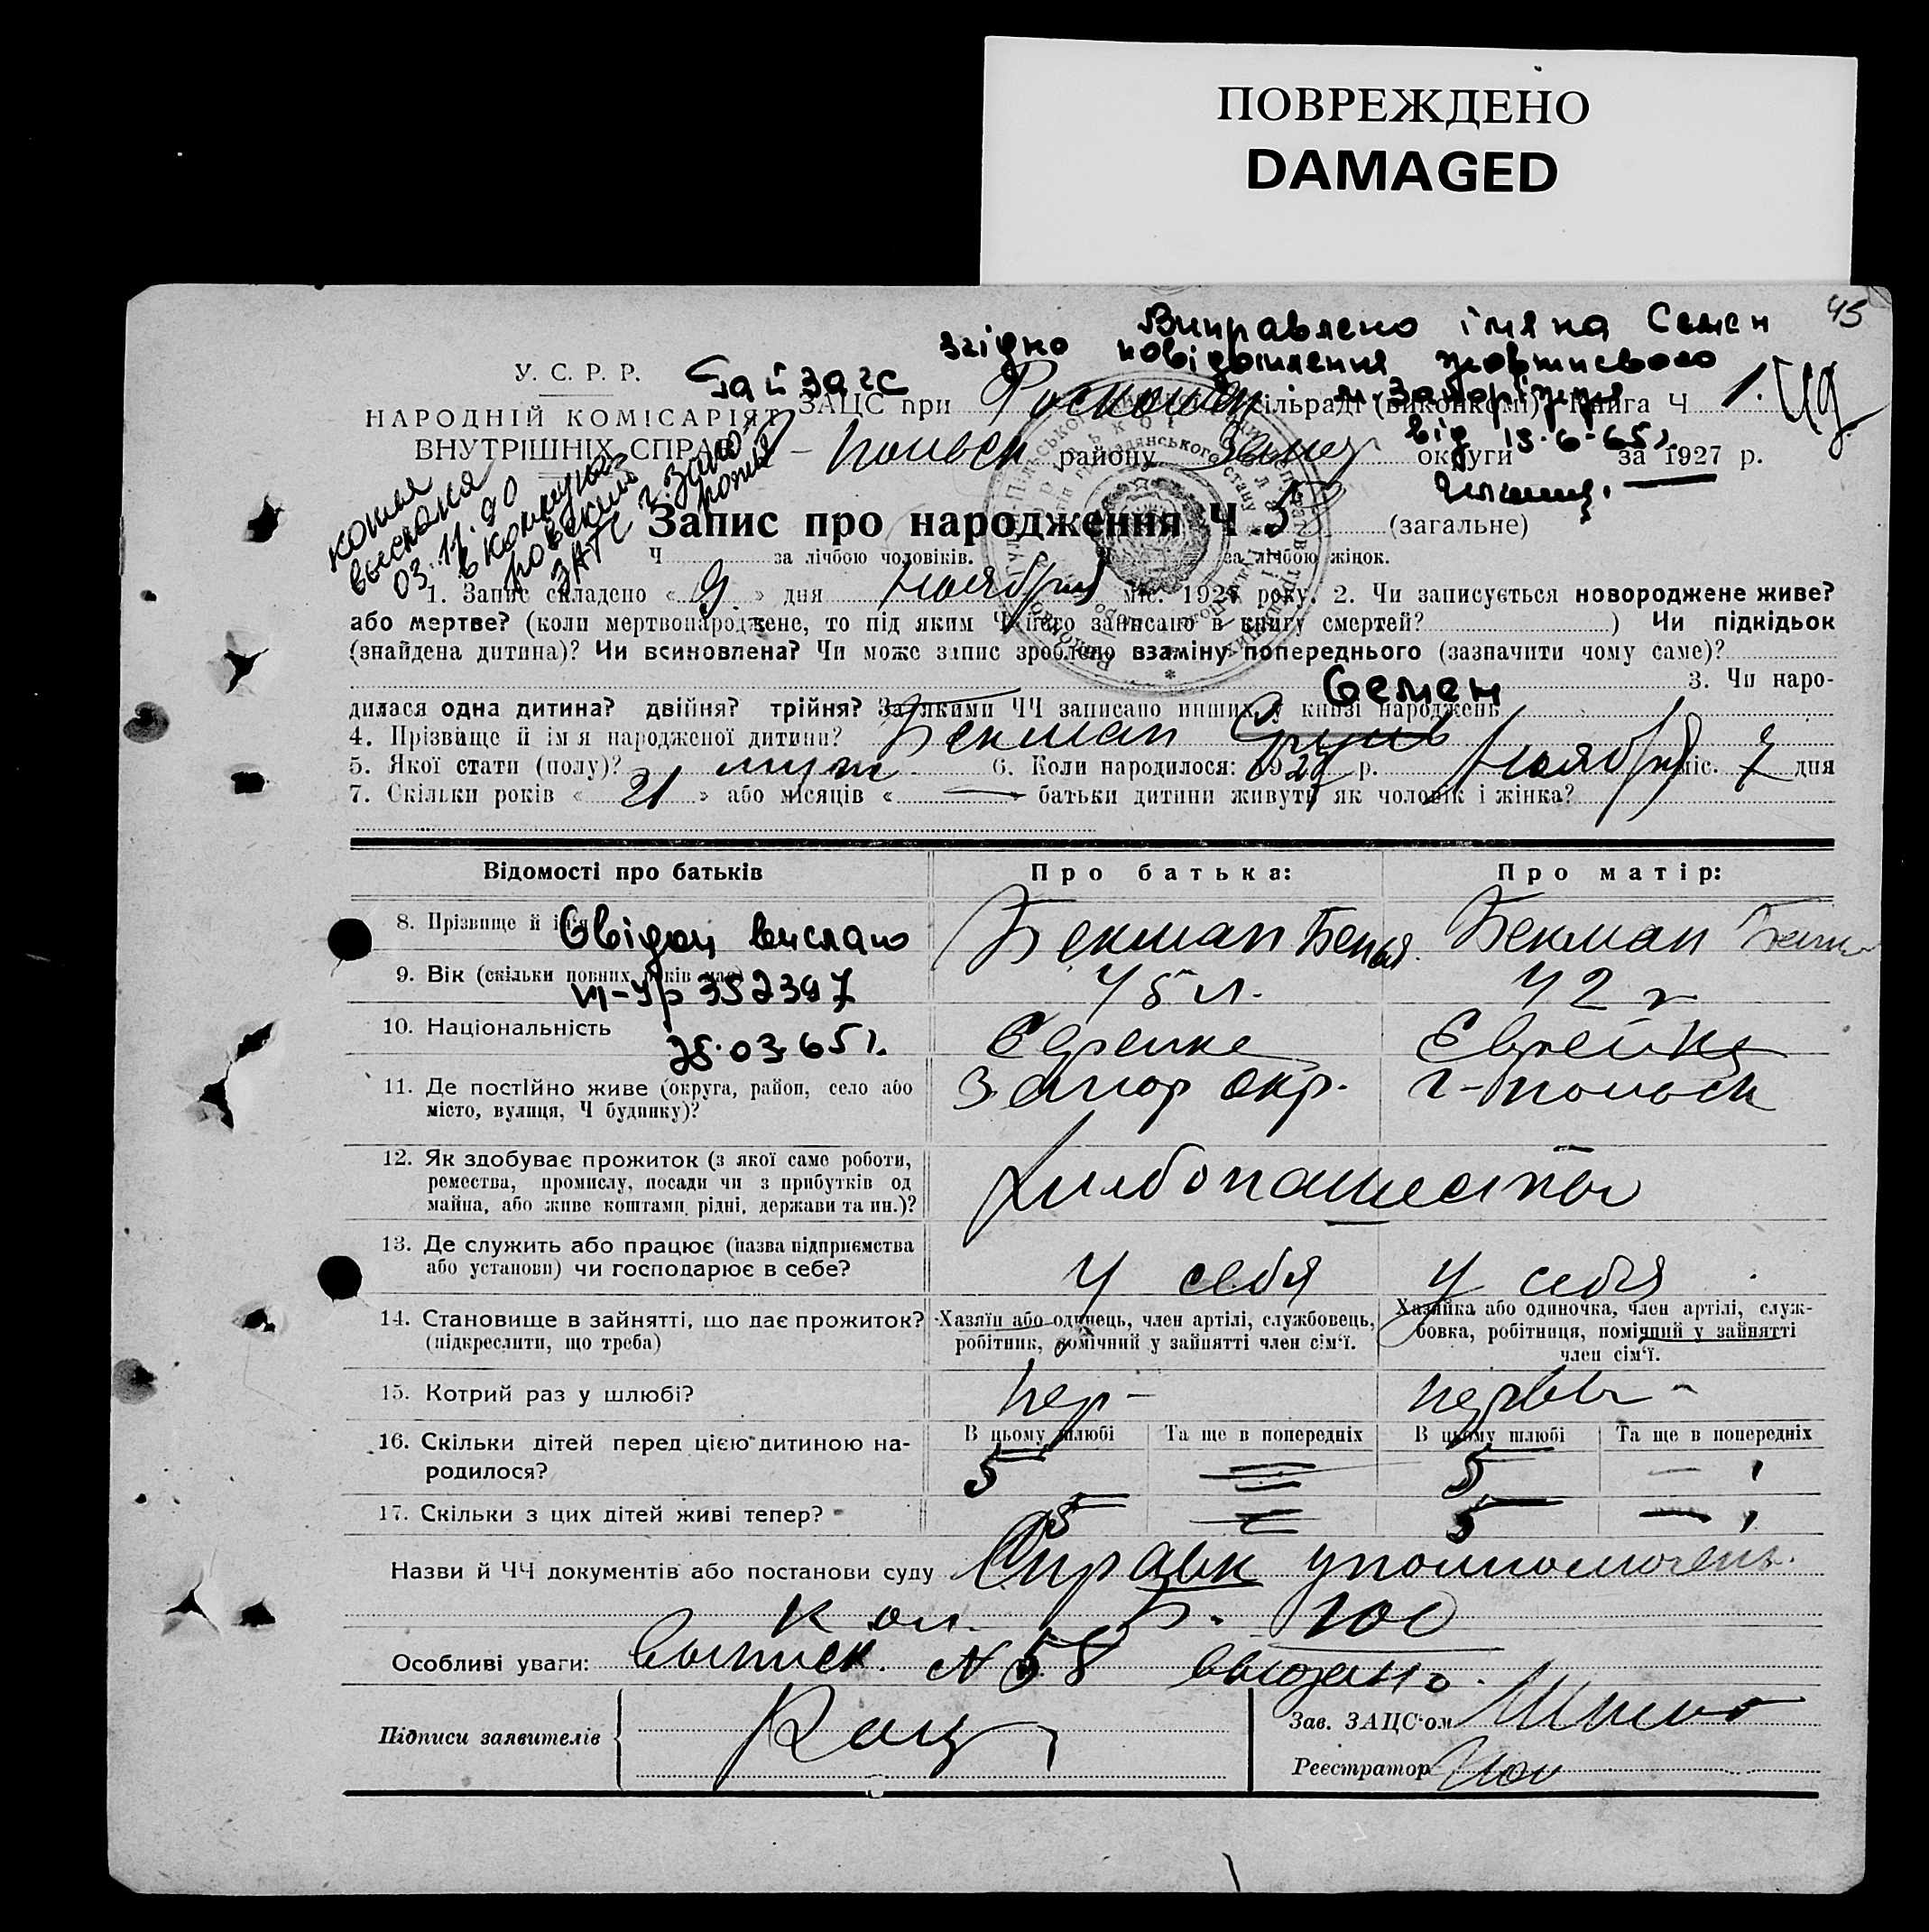 ПОВРЕЖДЕНО
DAMAGED
45
Виправлено імя на Семен
згідно повідомлення жовтневого
Райзагс м. Запоріжжя
від 13.6-65г.
У. С. Р. Р.
НАРОДНІЙ КОМІСАРІЯТ
ВНУТРІШНІХ СПРАВ
ЗАЦС при сільраді (виконкомі) Книга Ч 1.
район у Запор округи за 1927 р.
копия
выслана
03.11.90
ЗАГС
Запис про народження Ч 5 (загальне)
Ч за лічбою чоловіків. за лічбою жінок.
1. Запис складено « 9 » дня Ноября міс. 1927 року. 2. Чи записується новороджене живе?
або мертве? (коли мертвонароджене, то під яким Ч його записано в книгу смертей? ) Чи підкідьок
(знайдена дитина)? Чи всиновлена? Чи може запис зроблено взаміну попереднього (зазначити чому саме)?
3. Чи наро-
Семен
дилася одна дитина? двійня? трійня? За якими ЧЧ записано инших у книзі народжень
4. Прізвище й ім я народженої дитини? Бекман
5. Якої стати (полу)? муж 6. Коли народилося: 1927 р. Ноября міс. 7 дня
7. Скільки років « 21 » або місяців « — » батьки дитини живуть як чоловік і жінка?
Відомості про батьків Про батька: Про матір:
8. Прізвище й імя Бекман Бекман
Свідоц вислано
9. Вік (скільки повних років має) 45 л. 42 г
352397
10. Національність Еврейка
25.03.65г.
11. Де постійно живе (округа, район, село або
місто, вулиця, Ч будинку)? Запор окр.
12. Як здобуває прожиток (з якої саме роботи,
ремества, промислу, посади чи з прибутків од
майна, або живе коштами рідні, держави та ин.)?
Хлебопашество
13. Де служить або працює (назва підприємства
або установи) чи господарює в себе? У себя У себя
14. Становище в зайнятті, що дає прожиток?
(підкреслити, що треба)
Хазяїн або одинець, член артілі, службовець,
робітник, помічний у зайнятті член сім'ї.
Хазяйка або одиночка, член артілі, служ-
бовка, робітниця, помічний у зайнятті
член сім'ї.
15. Котрий раз у шлюбі? пер- первы-
16. Скільки дітей перед цією дитиною на-
родилося?
В цьому шлюбі Та ще в попередніх В цьому шлюбі Та ще в попередніх
5 — 5 —
17. Скільки з цих дітей живі тепер? 5 — 5 —
Назви й ЧЧ документів або постанови суду Справк уполномочень.
Особливі уваги: Выписк. № 58 выдано.
Підписи заявителів Кац
Зав. ЗАЦС'ом
Реєстратор